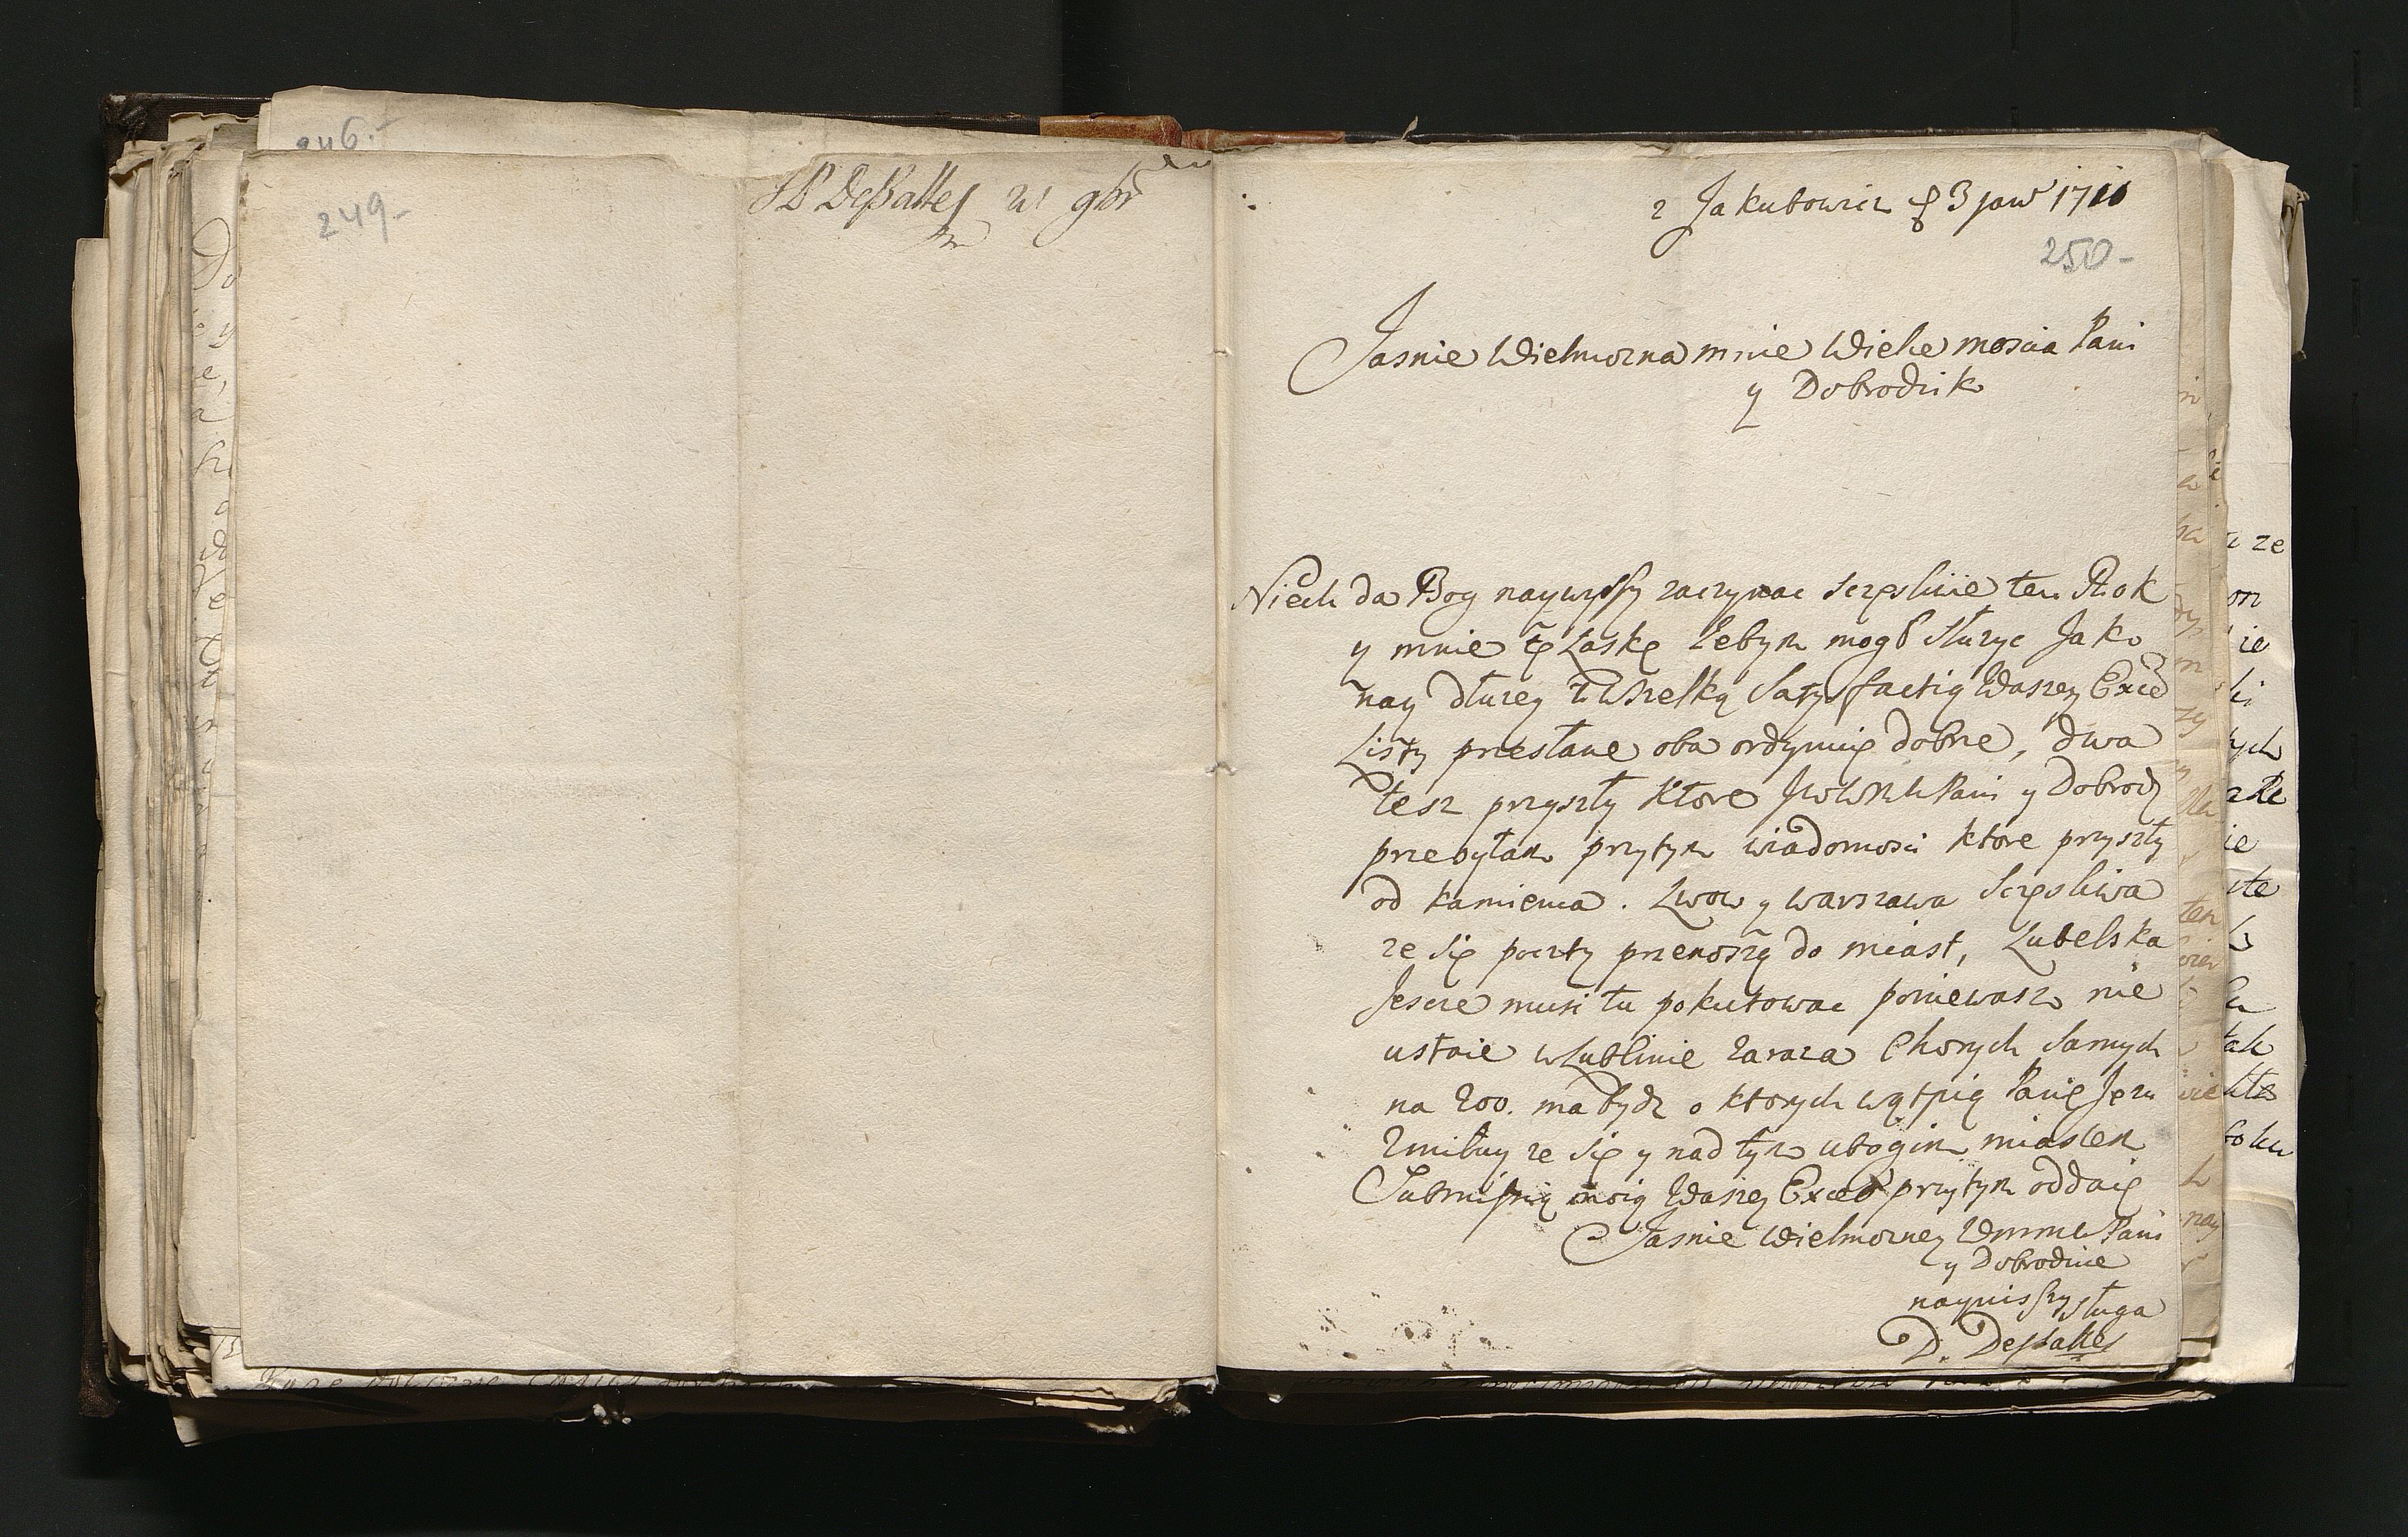 246.-
249-
DesSalles 21 gbr
z Jakubowicz 3 jan 1711
250-
Jasnie Wielmozna mnie Wielce moscia Pani
y Dobrodzik
Niech da Bog naywyssy zaczynac sczesliwie ten Rok
y mnie tę Łaskę zebym mogł słuzyc Jako
nay dłuzey z wszelką Satysfactią Waszey Exce
Listy przesłane oba ordynuię dobrze, dwa
tesz przyszły ktore Pani y Dobrodz
przesyłam przytym wiadomosci ktore przyszły
od kamienca. Lwow y warszawa sczęsliwa
ze się poczty przenoszą do miast, Lubelska
Jescze musi tu pokutowac poniewasz nie
ustaie w Lublinie zaraza Chorych samych
na 200. ma bydz o ktorych wątpią Panie Jezu
Zmiłuy ze się y nad tym ubogim miastem
Submissią moią Waszey Exce przytym oddaię
Jasnie Wielmozney Wmmc Pani
y Dobrodzice
naynissszy sługa
D. DesSalles